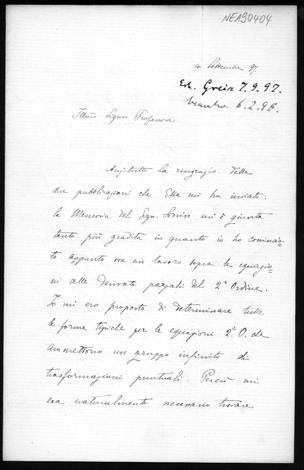 NEA90404
4 Settembre 97.
Erh. Greiz 7.9.97.
beantw. 6.2.98.
Signor Professore
La ringrazio delle
due pubblicazioni che Ella mi ha inviate:
la Memoria del Sign. mi è giunta
tanto più gradita in quanto io ho comincia-
to appunto ora un lavoro sopra le equazio-
ni alle derivate parziali del 2º Ordine.
Io mi ero proposto di determinare tutte
le forme tipiche per le equazioni 2º O. che
ammettono un gruppo infinito di
trasformazioni puntuali. Perciò mi
era naturalmente necessario trovare